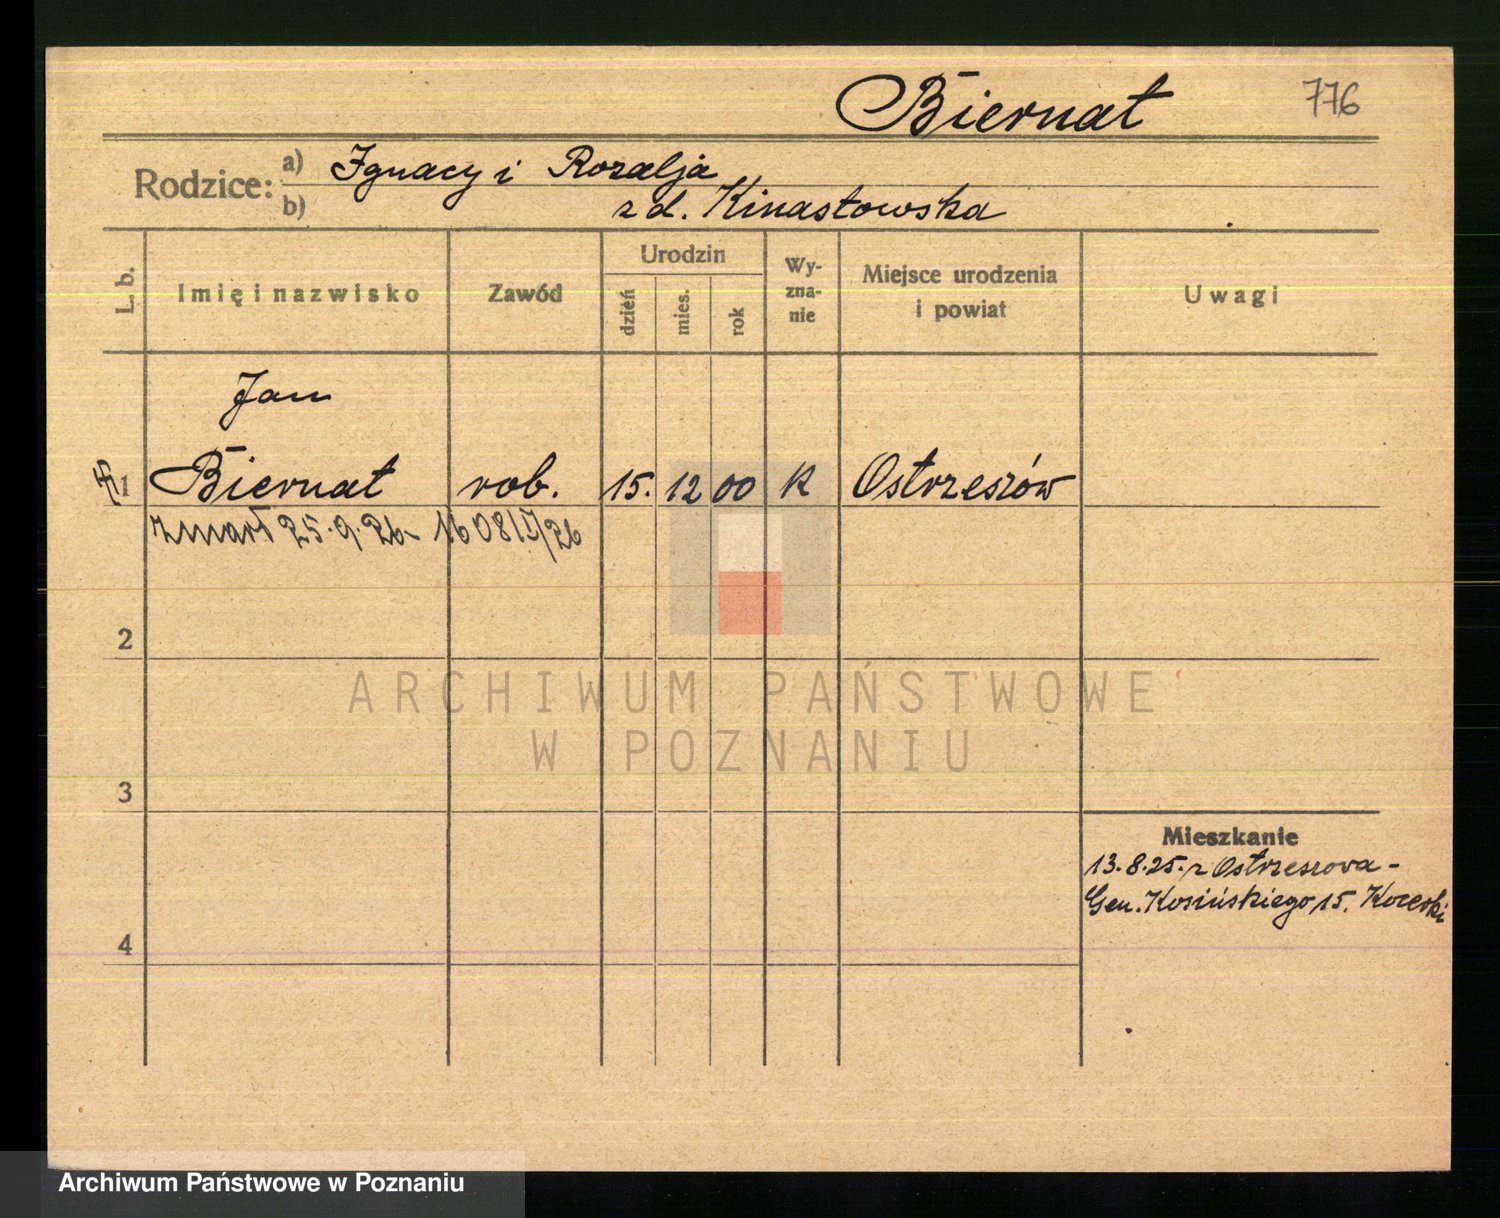 Biernat 776
Rodzice: a) Ignacy i Rozalja
b) z d. Kinastowska
L. b. Imię i nazwisko Zawód Urodzin dzień mies. rok Wy-zna-nie Miejsce urodzenia i powiat Uwagi
Jan
1 Biernat rob. 15. 12 00 k Ostrzeszów
zmarł 25.9.26
2
ARCHIWUM PAŃSTWOWE
W POZNANIU
3
Mieszkanie
13.8.25. z Ostrzeszowa -
Gen. Kosińskiego 15.
4
Archiwum Państwowe w Poznaniu